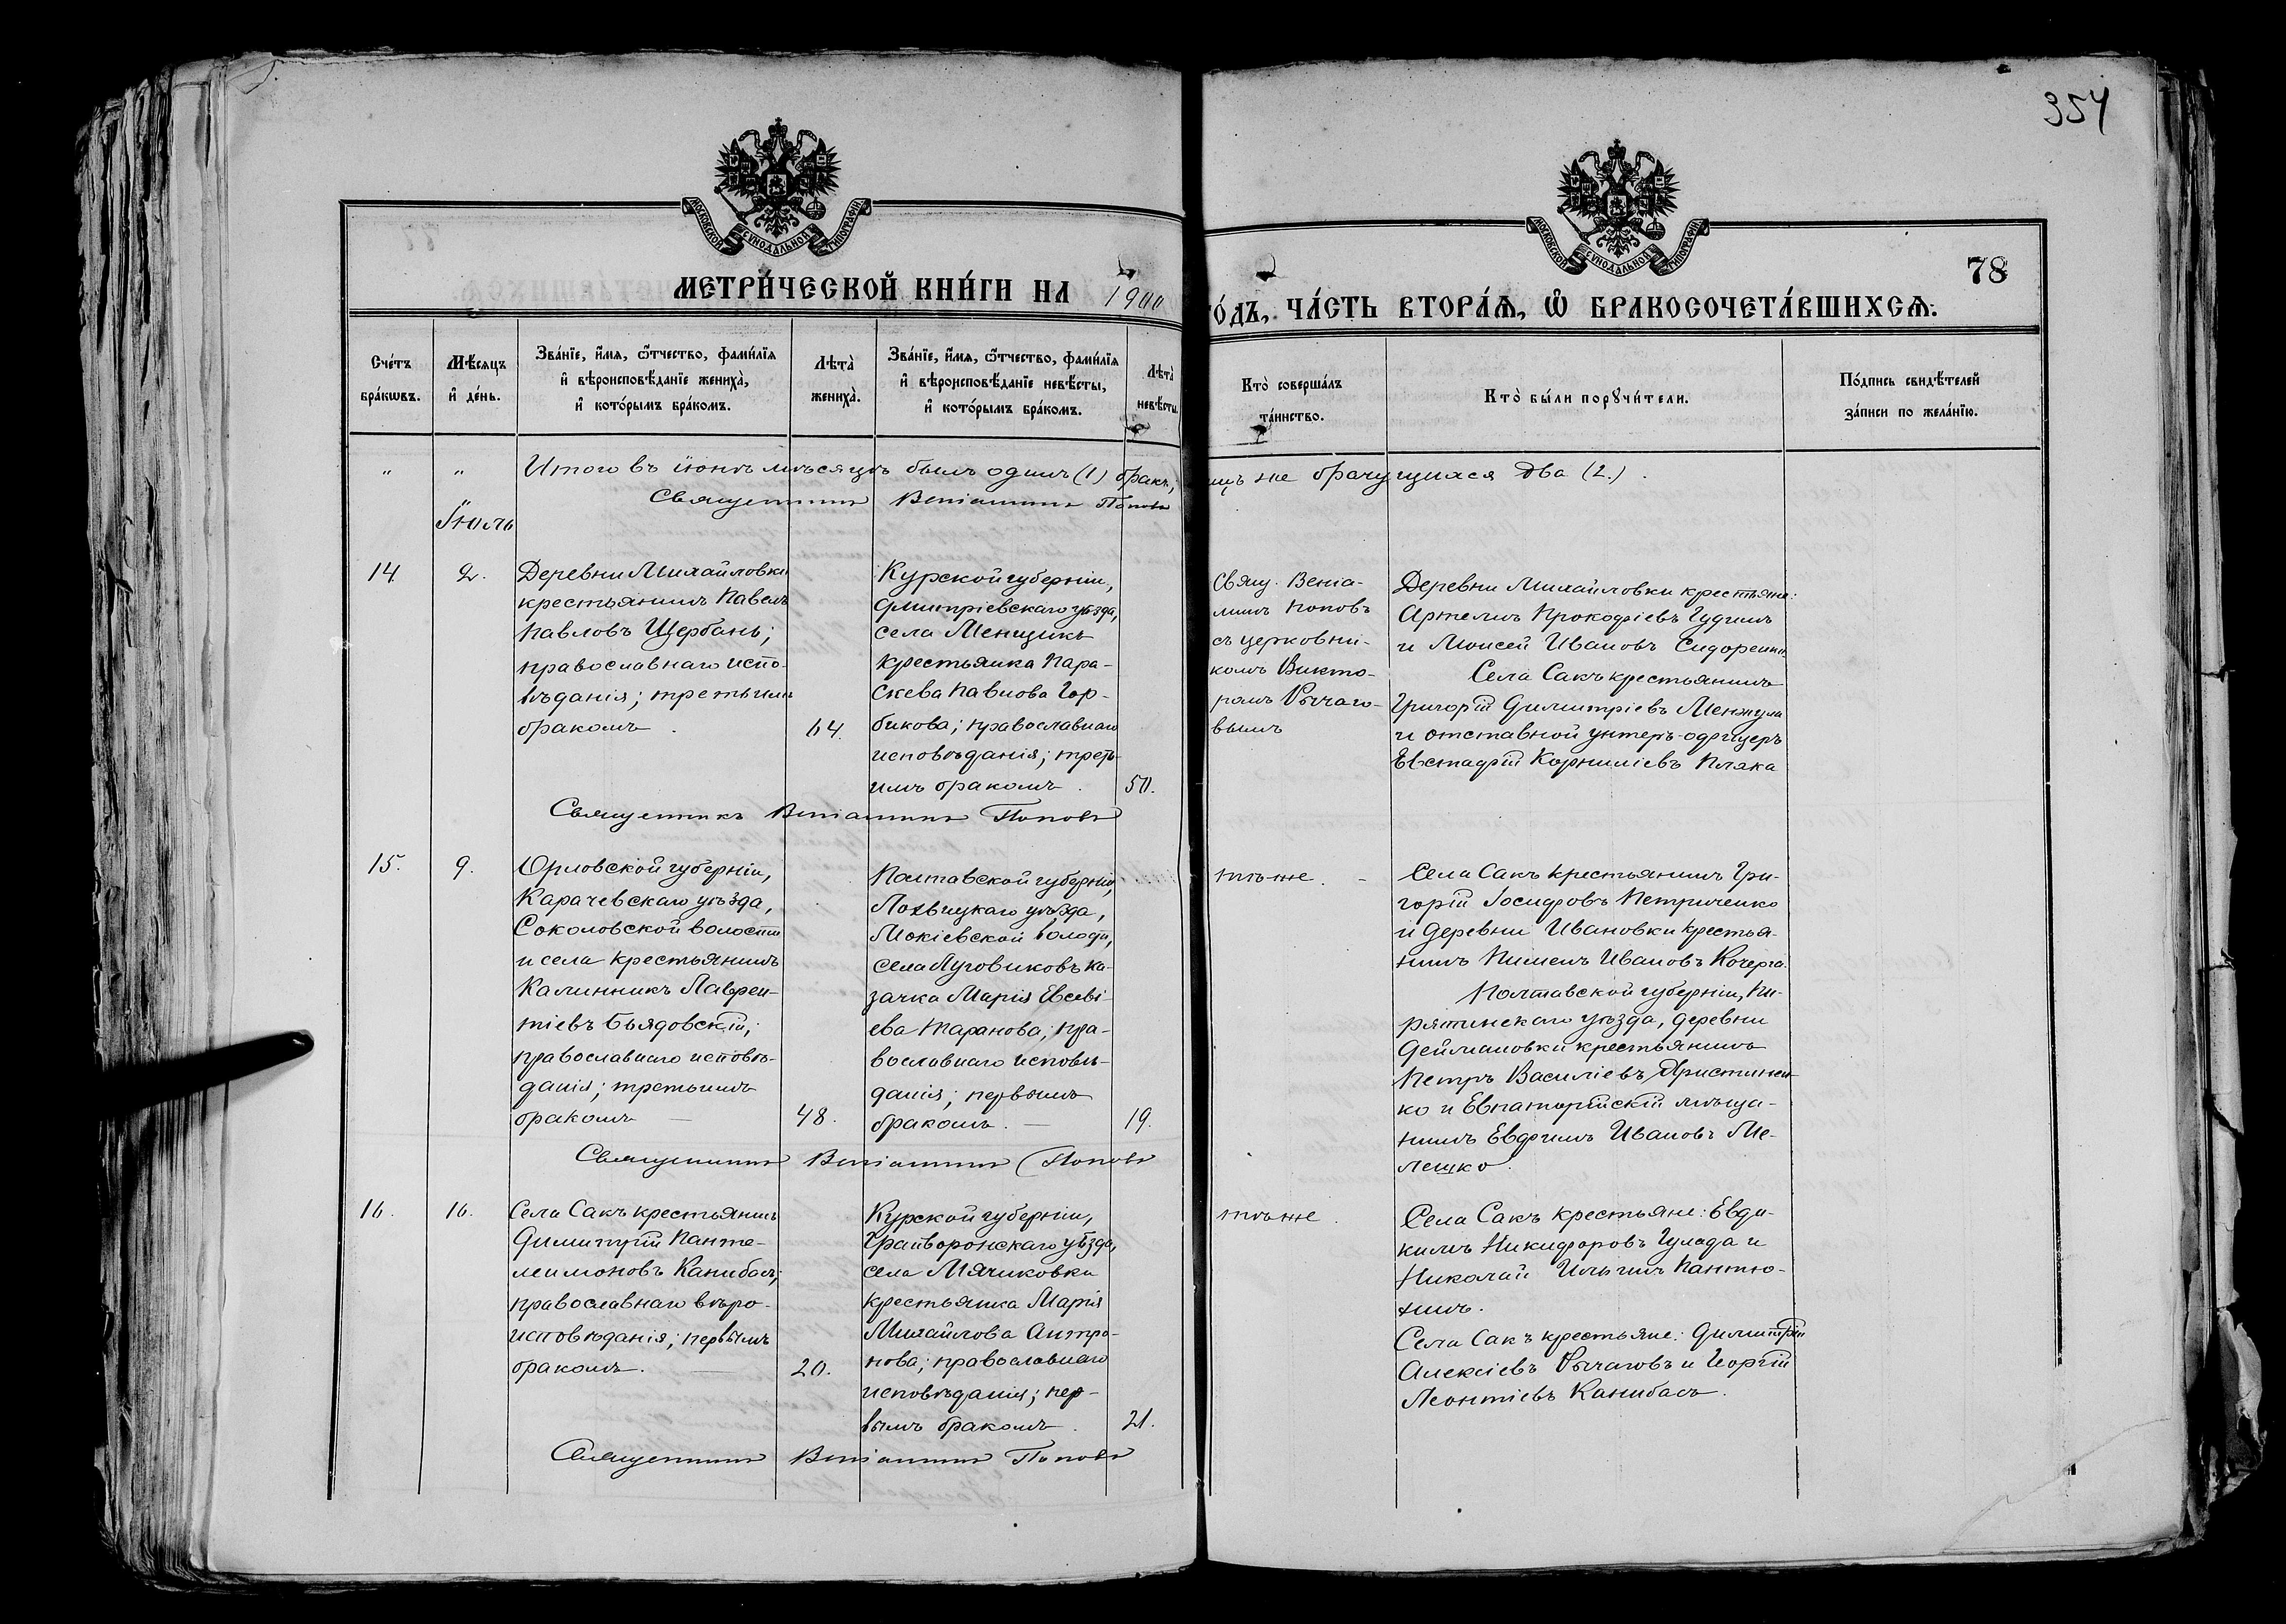 354
МОСКОВСКОЙ СѴНОДАЛЬНОЙ ТИПОГРАФІИ
МОСКОВСКОЙ СѴНОДАЛЬНОЙ ТИПОГРАФІИ
78
МЕТРИ́ЧЕСКОЙ КНИ́ГИ НА 1900 ГО́ДЪ, ЧА́СТЬ ВТОРА́Ѧ, Ѽ БРАКОСОЧЕТА́ВШИХСѦ.
Сче́тъ
бра́кѡвъ.
Мѣ́сяцъ
и҆ де́нь.
Зва́нїе, и҆́мѧ, ѻ҆́тчество, фами́лїѧ
и҆ вѣроисповѣ́данїе жениха̀,
и҆ кото́рымъ бра́комъ.
Лѣта̀
жениха̀.
Зва́нїе, и҆́мѧ, ѻ҆́тчество, фами́лїѧ
и҆ вѣроисповѣ́данїе невѣ́сты,
и҆ кото́рымъ бра́комъ.
Лѣта̀
невѣ́сты.
Кто̀ соверша́лъ
та́инство.
Кто̀ бы́ли порꙋчи́тели.
По́дпись свидѣ́телей
за́писи по жела́нїю.
" " Итого въ іюнѣ мѣсяцѣ былъ одинъ (1) бракъ, лицъ же брачущихся два (2.)
Священникъ Веніаминъ Поповъ
Іюль
14. 2.
Деревни Михайловки
крестьянинъ Павелъ
Павловъ Щербань;
православнаго испо-
вѣданія; третьимъ
бракомъ.
64.
Курской губерніи,
Дмитріевскаго уѣзда,
села Менщикъ
крестьянка Пара-
скева Павлова Гор-
бикова; православнаго
исповѣданія; треть-
имъ бракомъ.
50.
Свящ. Веніа-
минъ Поповъ
съ церковни-
комъ Викто-
ромъ Рычаго-
вымъ
Деревни Михайловки крестьяне:
Артемъ Прокофіевъ Гудимъ
и Моисей Ивановъ Сидоренко.
Села Сакъ крестьянинъ
Григорій Димитріевъ Менжула
и отставной унтеръ-офицеръ
Евстафій Корниліевъ Пляка
Священникъ Веніаминъ Поповъ
15. 9.
Орловской губерніи,
Карачевскаго уѣзда,
Соколовской волости
и села крестьянинъ
Калинникъ Лаврен-
тіевъ Бьядовскій;
православнаго исповѣ-
данія; третьимъ
бракомъ —
48.
Полтавской губерніи,
Лохвицкаго уѣзда,
Мокіевской волости,
села Луговиковъ ка-
зачка Марія Евсеві-
ева Таранова; пра-
вославнаго исповѣ-
данія; первымъ
бракомъ. —
19.
тѣ же. —
Села Сакъ крестьянинъ Гри-
горій Іосифовъ Петриченко
и деревни Ивановки крестья-
нинъ Пименъ Ивановъ Кочерга.
Полтавской губерніи, Пи-
рятинскаго уѣзда, деревни
Деймановки крестьянинъ
Петръ Василіевъ Пристинен-
ко и Евпаторійскій мѣща-
нинъ Евфимъ Ивановъ Ме-
лешко.
Священникъ Веніаминъ Поповъ
16. 16.
Села Сакъ крестьянинъ
Димитрій Панте-
леимоновъ Канибасъ;
православнаго вѣро-
исповѣданія; первымъ
бракомъ.
20.
Курской губерніи,
Грайворонскаго уѣзда,
села Мячиковки
крестьянка Марія
Михайлова Антро-
пова; православнаго
исповѣданія; пер-
вымъ бракомъ.
21.
тѣ же.
Села Сакъ крестьяне: Евдо-
кимъ Никифоровъ Гулада и
Николай Ильинъ Пантю-
хинъ.
Села Сакъ крестьяне: Димитрій
Алексіевъ Рычаговъ и Георгій
Леонтіевъ Канибасъ.
Священникъ Веніаминъ Поповъ